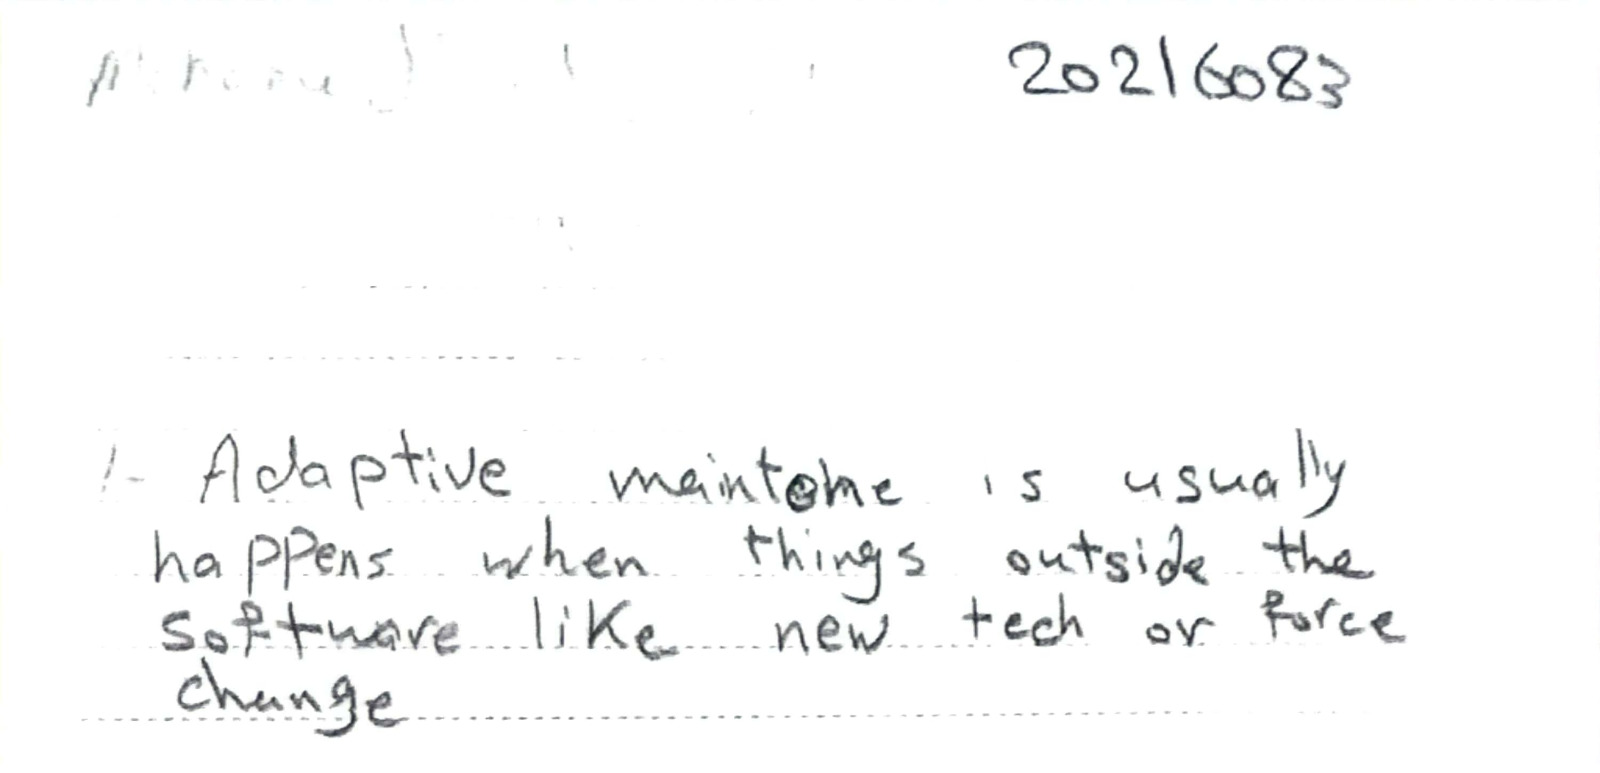 20216083
1- Adaptive maintome is usually
happens when things outside the
software like new tech or force
change